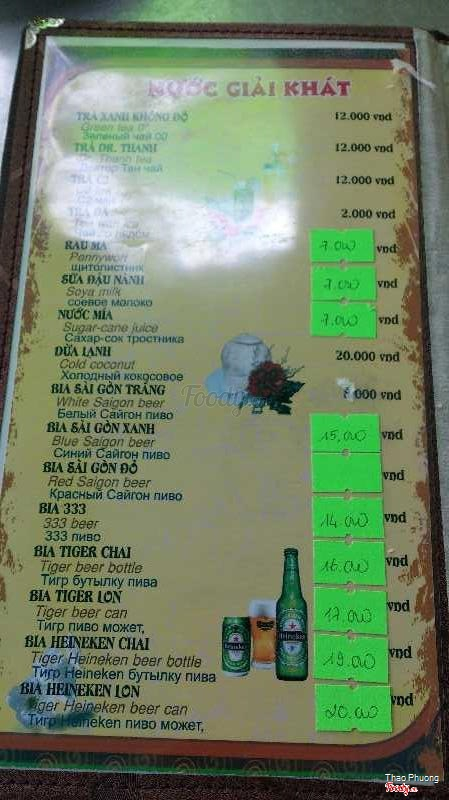 NƯỚC GIẢI KHÁT
TRÀ XANH KHÔNG ĐỘ 12.000 vnd
Green tea 0°
Зеленый чай 00
TRÀ DR. THANH 12.000 vnd
Dr. Thanh tea
Доктор Тан чай
TRÀ C2 12.000 vnd
C2
TRÀ ĐÁ 2.000 vnd
RAU MÁ 7.000 vnd
Pennywort
щитолистник
SỮA ĐẬU NÀNH 7.000 vnd
Soya milk
соевое молоко
NƯỚC MÍA 7.000 vnd
Sugar-cane juice
Сахар-сок тростника
DỪA LẠNH 20.000 vnd
Cold coconut
Холодный кокосовое
BIA SÀI GÒN TRẮNG .000 vnd
White Saigon beer
Белый Сайгон пиво
BIA SÀI GÒN XANH 15.000 vnd
Blue Saigon beer
Синий Сайгон пиво
BIA SÀI GÒN ĐỎ vnd
Red Saigon beer
Красный Сайгон пиво
BIA 333 14.000 vnd
333 beer
333 пиво
BIA TIGER CHAI 16.000 vnd
Tiger beer bottle
Тигр бутылку пива
BIA TIGER LON 17.000 vnd
Tiger beer can
Тигр пиво может,
BIA HEINEKEN CHAI 19.000 vnd
Tiger Heineken beer bottle
Тигр Heineken бутылку пива
BIA HEINEKEN LON 20.000 vnd
Tiger Heineken beer can
Тигр Heineken пиво может,
Heineken
Heineken
Thao Phuong
Foody.vn